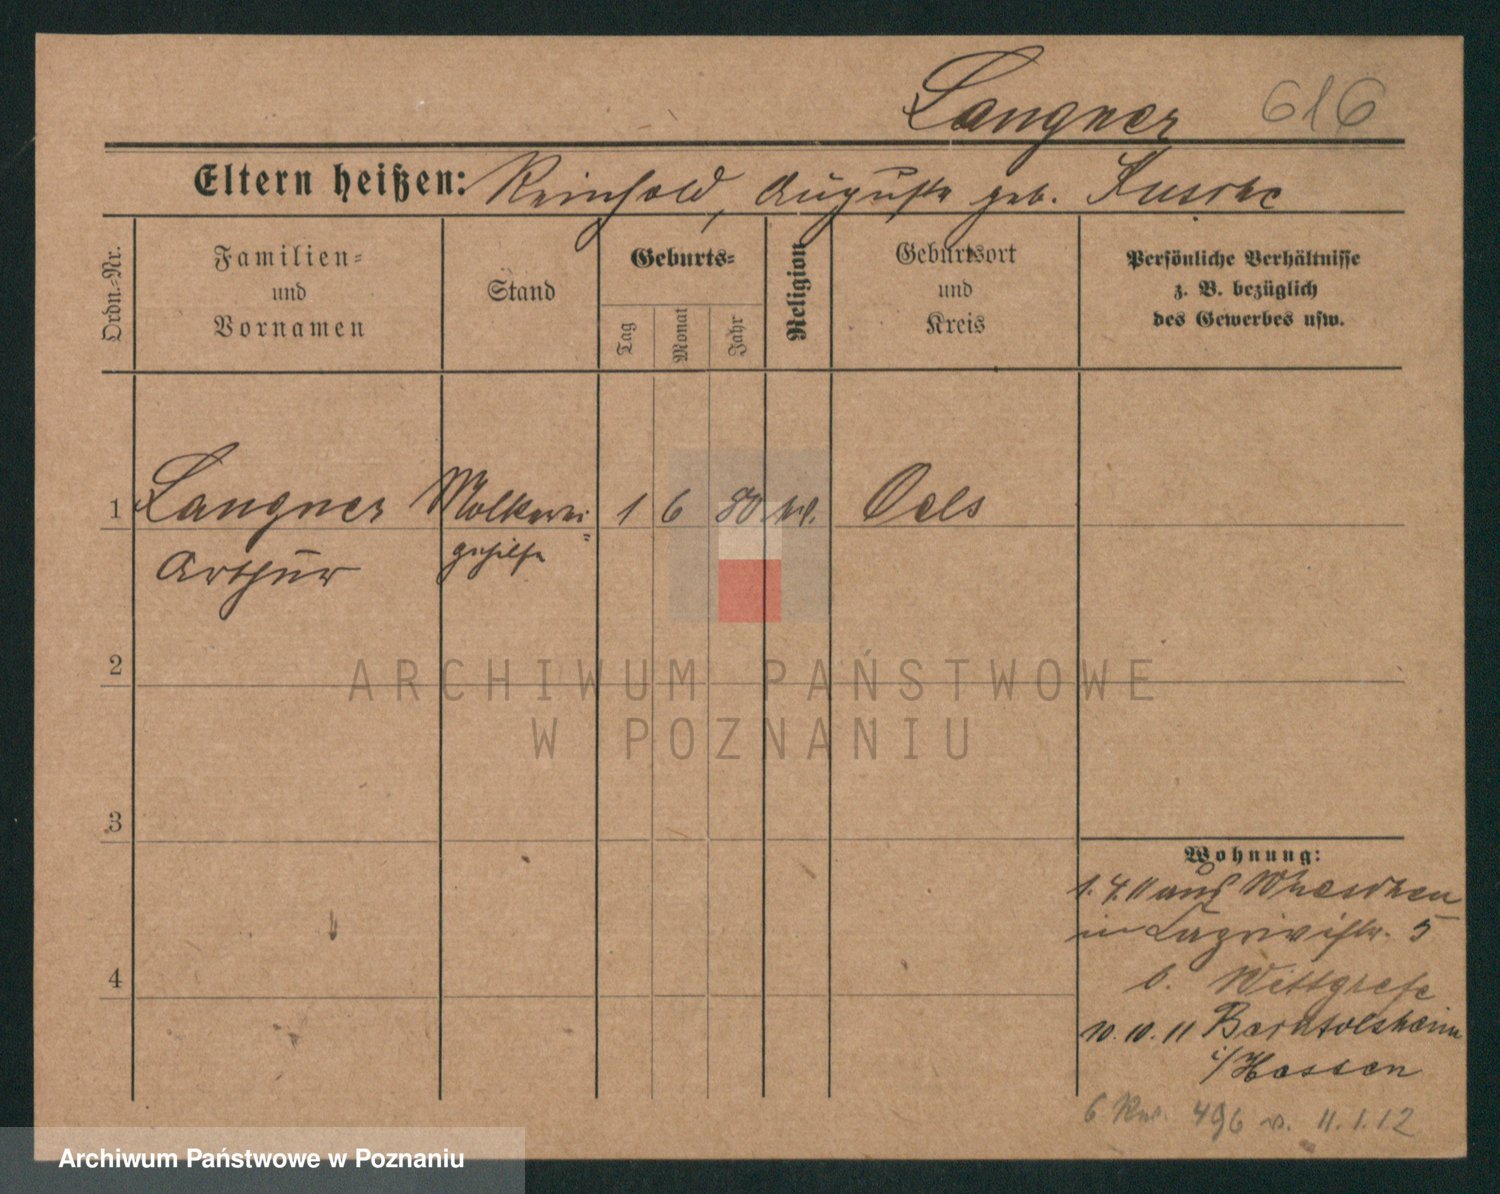 Langner 616
Eltern heißen: Reinhold, Auguste geb. Kusche
Ordn.-Nr.
Familien-
und
Vornamen
Stand
Geburts-
Tag
Monat
Jahr
Religion
Geburtsort
und
Kreis
Persönliche Verhältnisse
z. B. bezüglich
des Gewerbes usw.
1 Langner Molkerei= 1 6 80 Oels
Arthur gehilfe
2
3
4
ARCHIWUM PAŃSTWOWE
W POZNANIU
Wohnung:
1.4.11 aus Wreschen
in 5
b. Wittgrefe
10.10.11
i/Hessen
6 496 v. 11.1.12
Archiwum Państwowe w Poznaniu